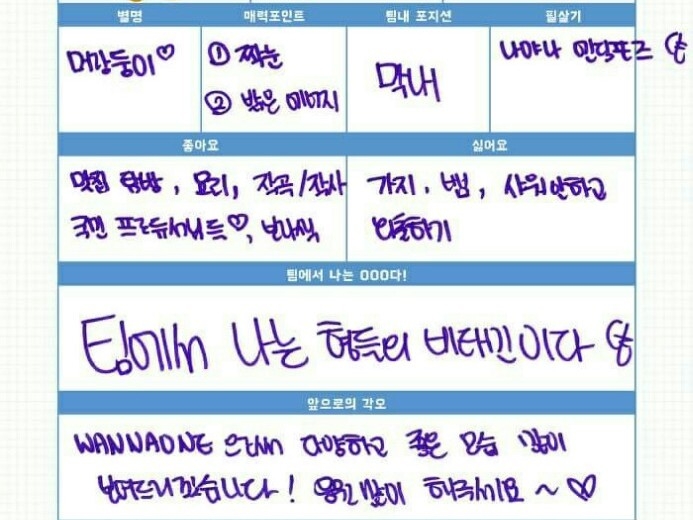 별명 매력포인트 팀내 포지션 필살기
머강둥이♡ ① 짝눈 막내 나야나 민닥포즈
② 밝은 에너지
좋아요 싫어요
맛집 탐방, 요리, 작곡/작사 가지, 뱀, 샤워안하고
국민 프로듀서님들♡, 보라색 외출하기
팀에서 나는 OOO다!
팀에서 나는 형들의 비타민이다
앞으로의 각오
WANNAONE 으로써 다양하고 좋은 모습 많이
보여드리겠습니다! 응원 많이 해주세요~♡